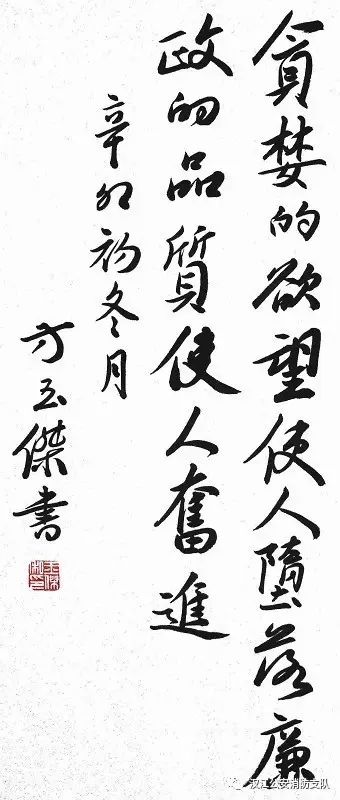 貪婪的欲望使人墮落廉
政的品質使人奮進
辛卯初冬月
方玉傑書
汉江公安消防支队